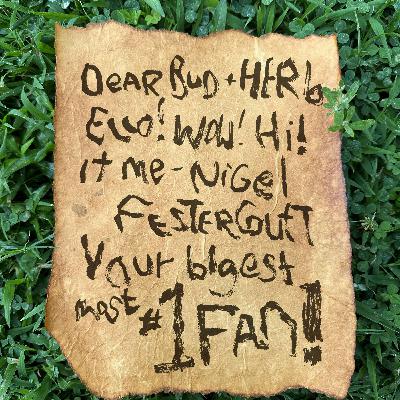 DEAR BUD + HERb
ELLO! WOW! Hi!
it me - NiGel
FESTERGUTT
Your bigest
most #1 FAN!